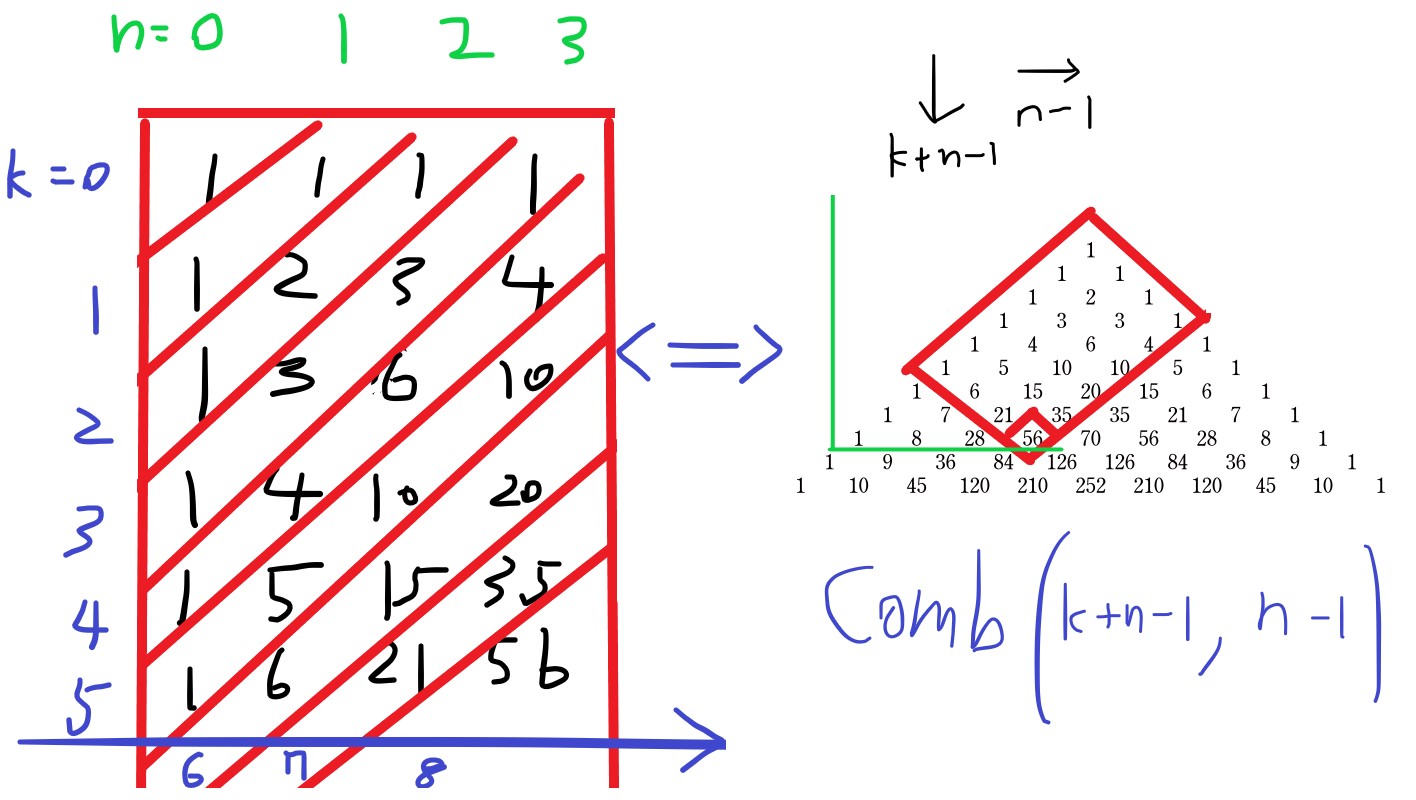 n=0 1 2 3
k=0 1 1 1 1
1 1 2 3 4
2 1 3 6 10
3 1 4 10 20
4 1 5 15 35
5 1 6 21 56
6 7 8
<=>
↓ →
k+n-1 n-1
1
1 1
1 2 1
1 3 3 1
1 4 6 4 1
1 5 10 10 5 1
1 6 15 20 15 6 1
1 7 21 35 35 21 7 1
1 8 28 56 70 56 28 8 1
1 9 36 84 126 126 84 36 9 1
1 10 45 120 210 252 210 120 45 10 1
Comb(k+n-1, n-1)